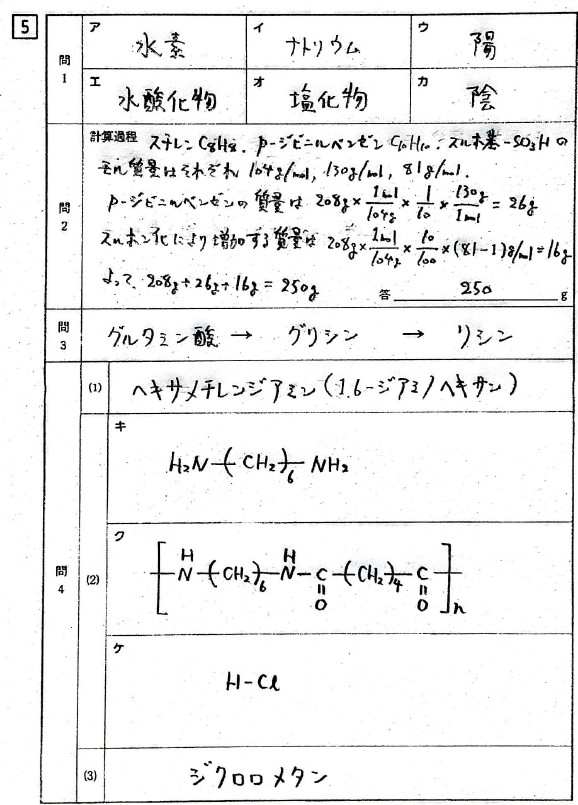 5
問1
ア 水素
イ ナトリウム
ウ 陽
エ 水酸化物
オ 塩化物
カ 陰
問2
計算過程 スチレン C8H8、p-ジビニルベンゼン C10H10、スルホ基 -SO3H の
モル質量はそれぞれ 104g/mol, 130g/mol, 81g/mol.
p-ジビニルベンゼンの質量は 208g × 1mol/104g × 1/10 × 130g/1mol = 26g
スルホン化により増加する質量は 208g × 1mol/104g × 10/100 × (81-1)g/mol = 16g
よって、208g + 26g + 16g = 250g
答 250 g
問3
グルタミン酸 → グリシン → リシン
問4
(1) ヘキサメチレンジアミン (1,6-ジアミノヘキサン)
(2)
キ
H2N-(CH2)6-NH2
ク
[-NH-(CH2)6-NH-C(=O)-(CH2)4-C(=O)-]n
ケ
H-Cl
(3) ジクロロメタン